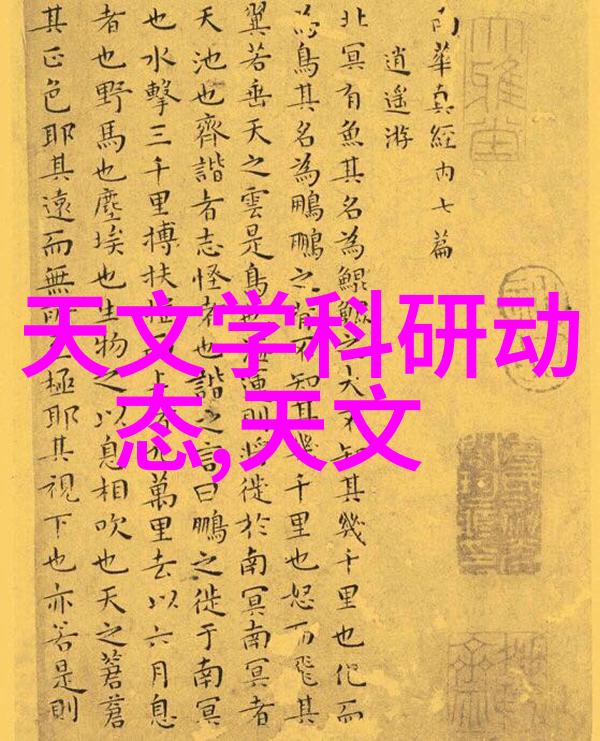 南華真經内七篇
逍遥游
北冥有魚其名為鯤鯤之大不知其幾千里也化而
為鳥其名為鵬鵬之背不知其幾千里也怒而飛其
翼若垂天之雲是鳥也海運則將徙於南冥南冥者
天池也齊諧者志怪者也諧之言曰鵬之徙于南冥
也水擊三千里搏扶摇而上者九萬里去以六月息
者也野馬也塵埃也生物之以息相吹也天之蒼蒼
其正色耶其遠而無所至極耶其視下也亦若是則
大雅堂
天文学科研动
态,天文